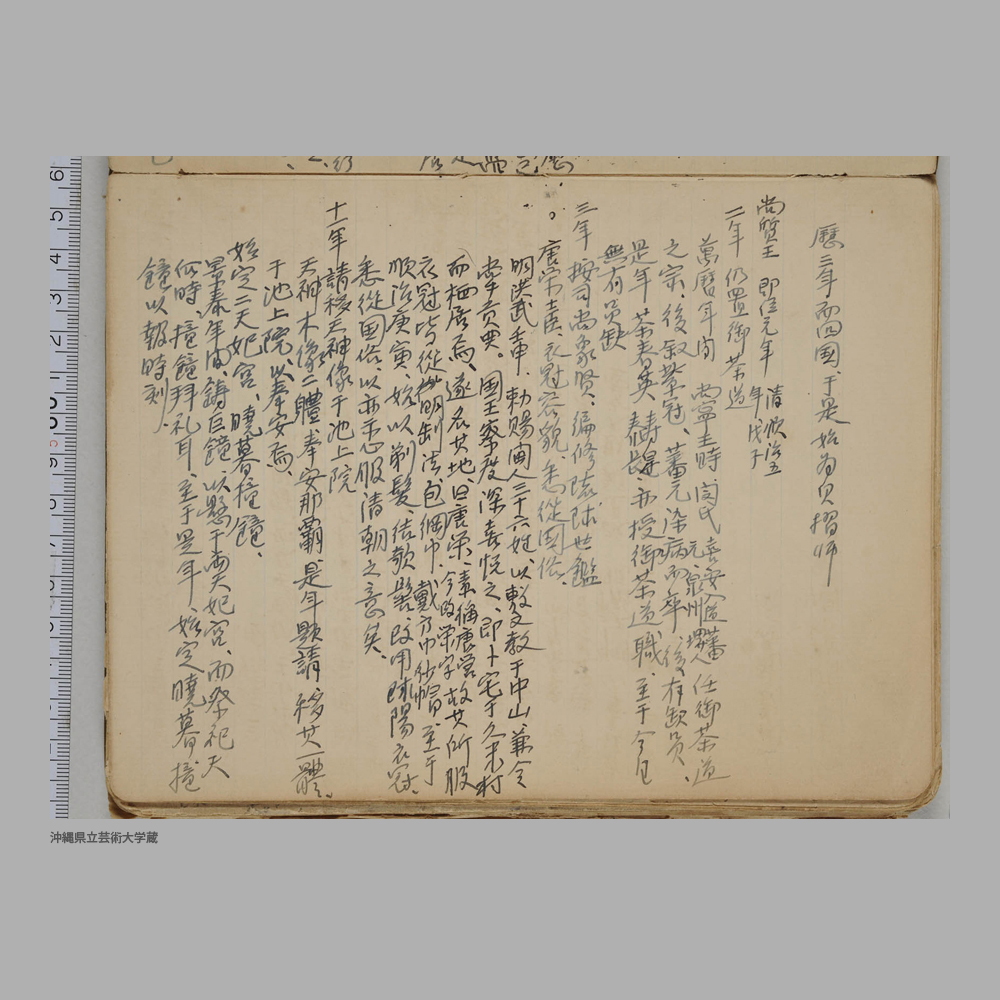 歴三年而回国、于是始為貝摺師
尚質王 即位元年 清順治五年戊子
二年 仍置御茶道
萬曆年間 尚寧王時 閭氏喜安入道蕃元、泉州堺人 任御茶道
之宗、後叙紫冠、蕃元染病而卒、後有缺員、
是年 茶春英 赤授御茶道職、至于今日
無有員缺
三年 按司尚象賢、編修琉球世鑑
唐榮士臣衣冠容貌、悉從国俗、
明洪武壬申、勅賜閩人三十六姓、以敷文教于中山、兼令
掌貢典。国王察度深喜悦之、即卜宅于久米村
而栖居焉、遂名其地曰唐栄、素稱唐営、今改栄字 故其所服
衣冠皆從明朝制法、包網巾、戴方巾紗帽、至于
順治庚寅、始以剃髮、結欹髻、改用球陽衣冠、
悉從国俗、以亦示心服清朝之意矣、
十一年 請移天神像于池上院
天神木像二體奉安那霸、是年題請移其一體
于池上院、以奉安焉、
始定二天妃宮、曉暮撞鐘、
景泰年間、鑄巨鐘、以懸于両天妃宮、而祭祀天
何時、撞鐘拝礼耳、至于是年、始定曉暮撞
鐘以報時刻、
沖縄県立芸術大学蔵